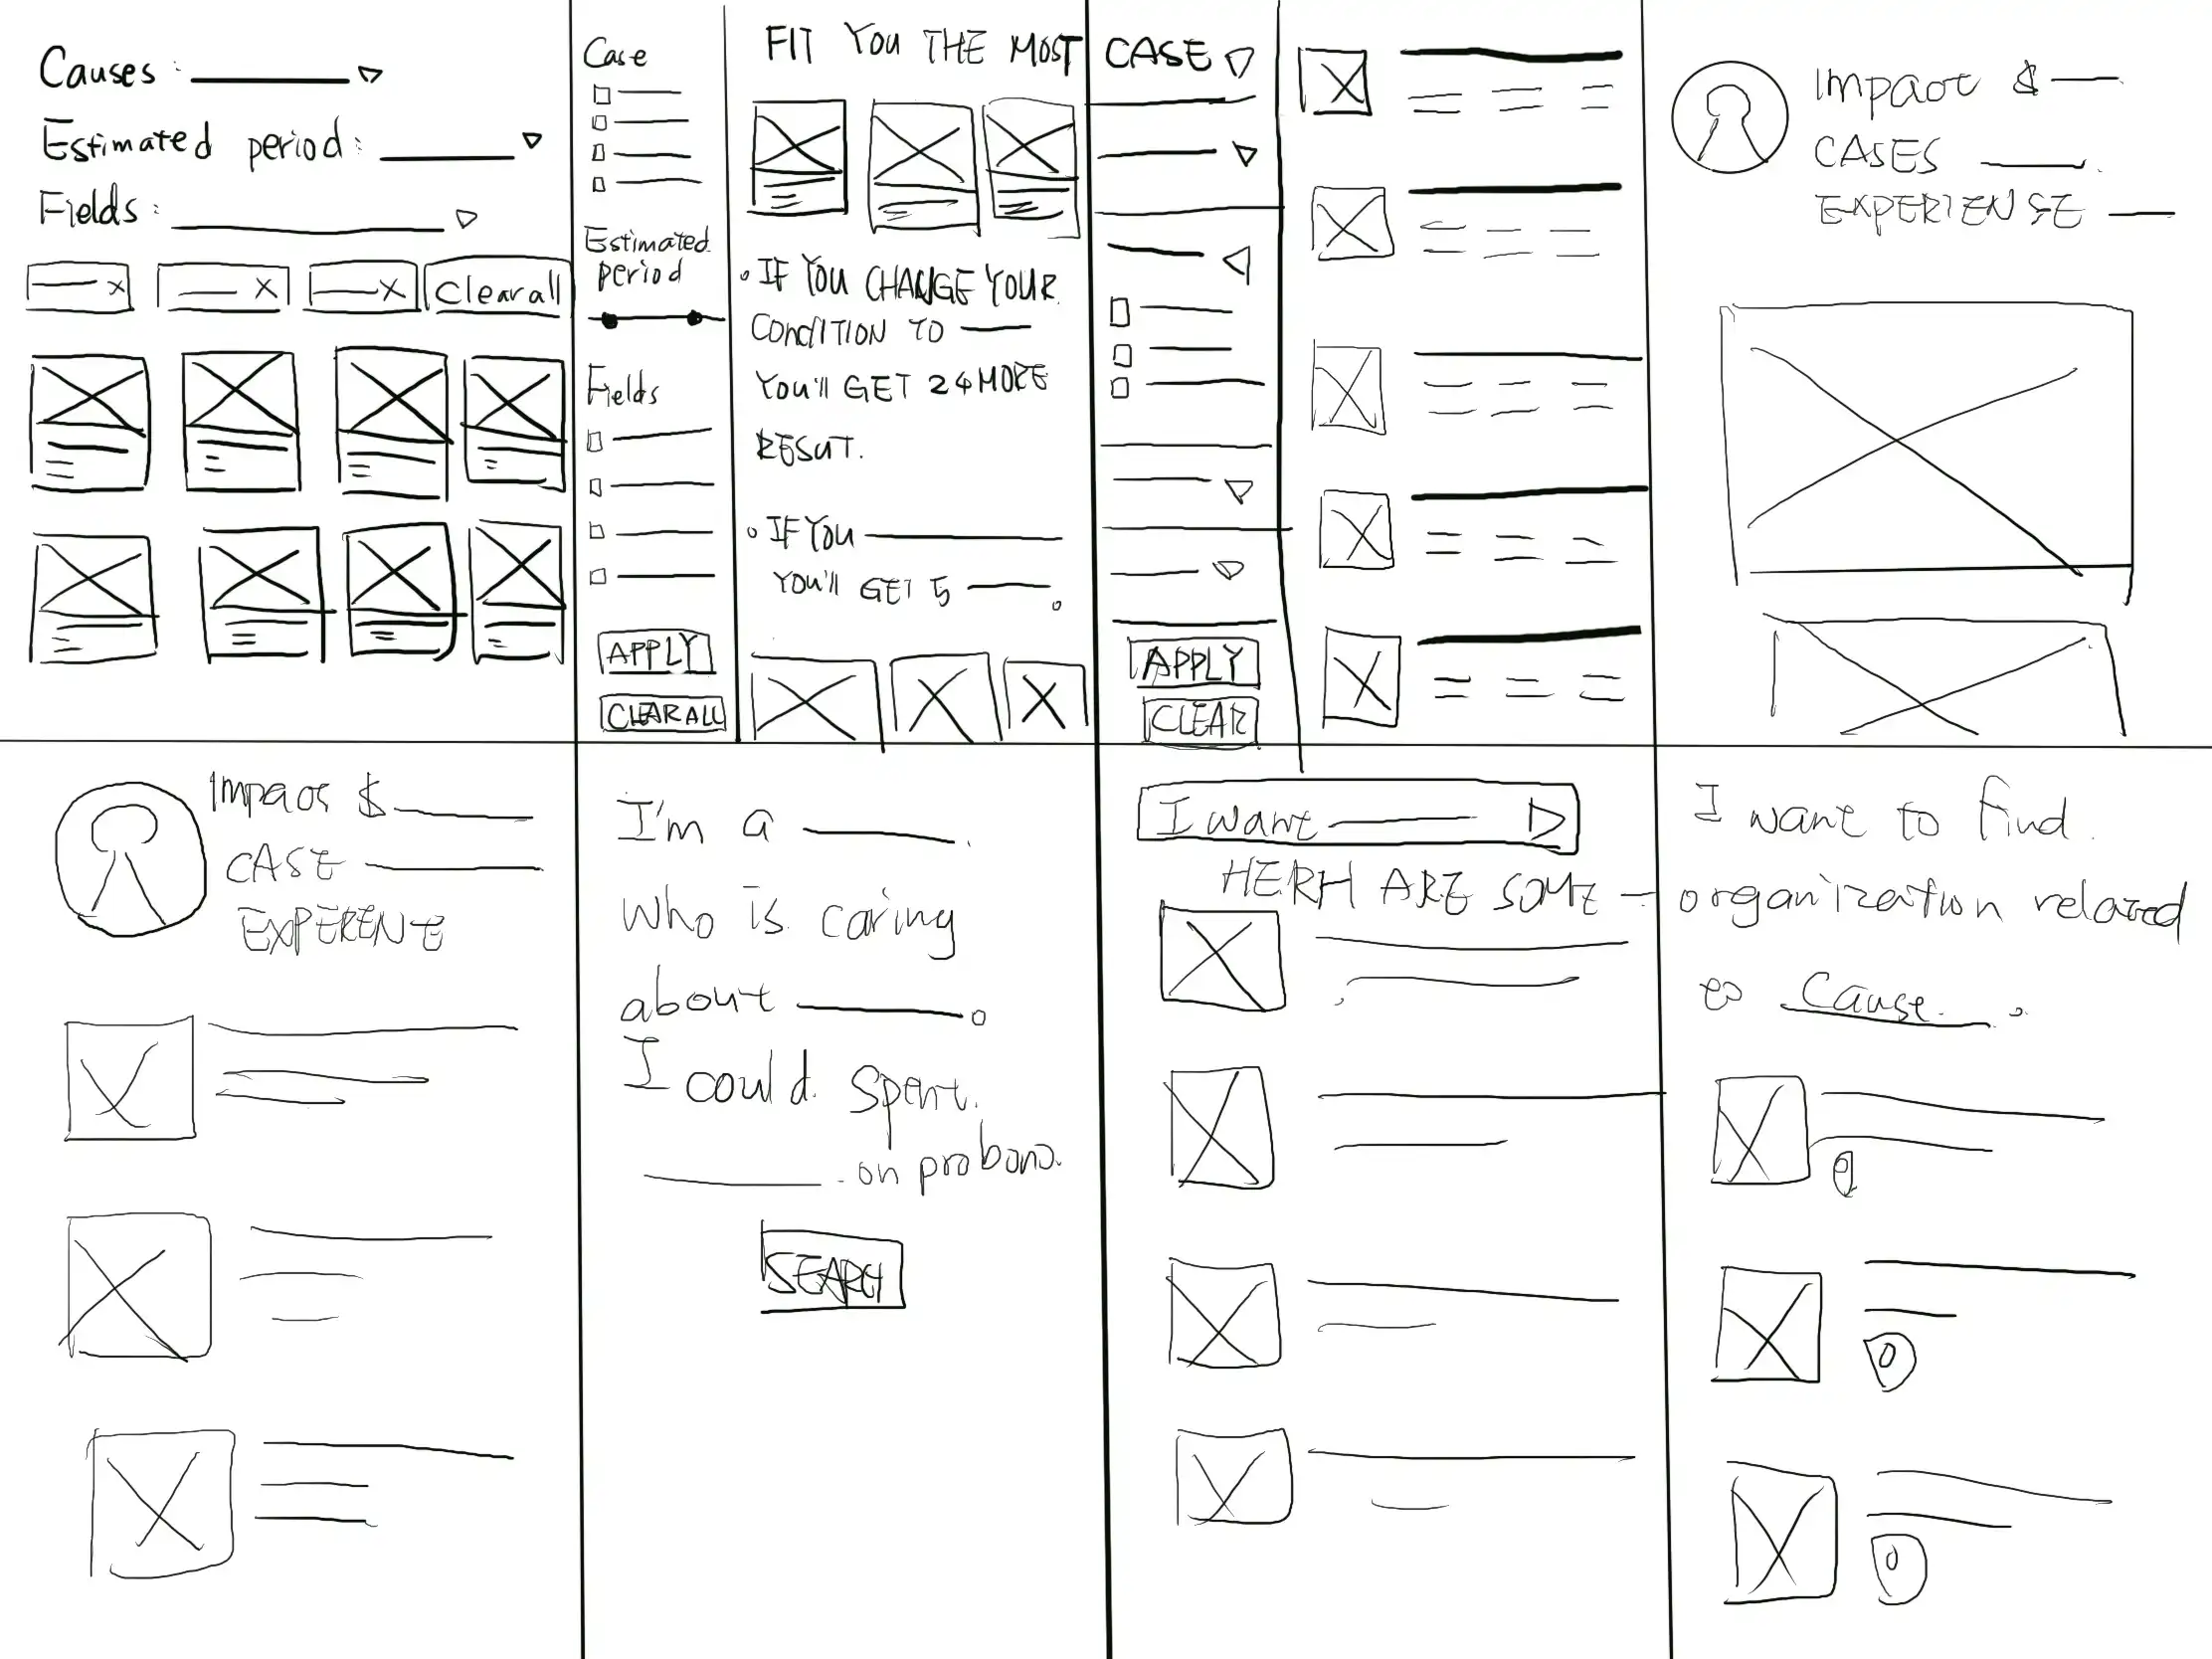 Causes :
Estimated period :
Fields :
x
X
X
Clear all
Case
Estimated
period
Fields
APPLY
CLEAR ALL
FIT YOU THE MOST
IF YOU CHANGE YOUR
CONDITION TO
YOU'll GET 24 MORE
RESUT.
IF YOU
YOU'll GET 5
CASE
APPLY
CLEAR
Impact $
CASES
EXPERIENSE
Impact $
CASE
EXPERENE
I'm a
who is caring
about
I could spent
on probono.
SEARCH
I want
HERH ARE SOME
I want to find
organization related
to Cause.